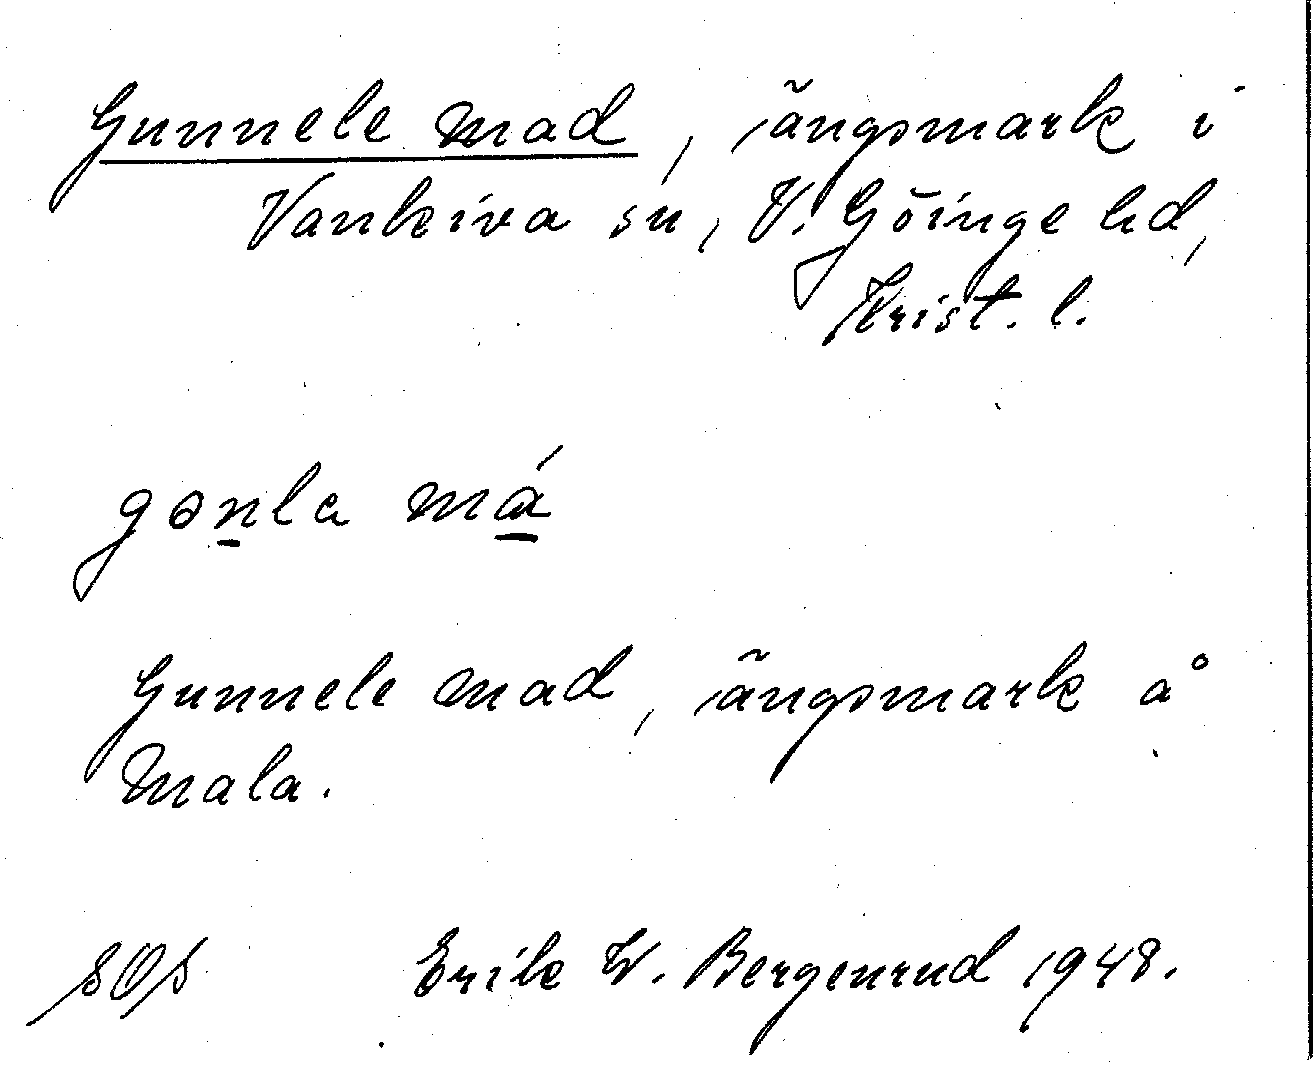 Gunnele mad, ängsmark i
Vankiva sn, V. Göinge hd,
Krist. l.
gɵnla má
Gunnele mad, ängsmark å
Mala.
SOS Erik W. Bergenrud 1948.